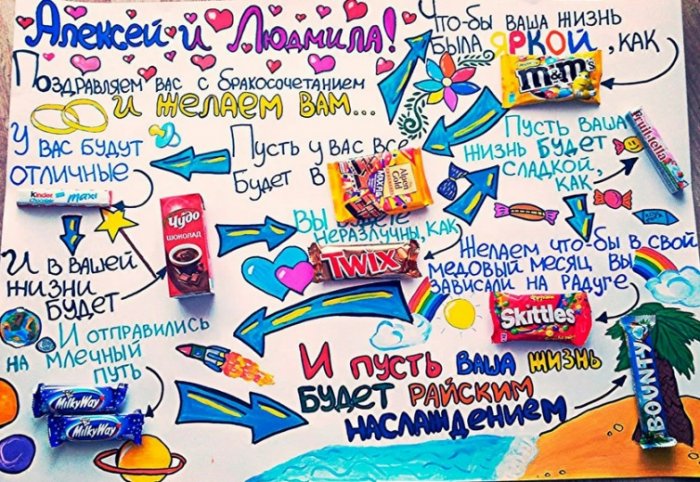 Алексей и Людмила!
Поздравляем вас с бракосочетанием
и желаем вам...
У вас будут
отличные
Kinder
Chocolate maxi
И в вашей
жизни
будет
Чудо
ШОКОЛАД
Пусть у вас все
будет в
Alpen
Gold
Вы
неразлучны, как
TWIX
Что-бы ваша жизнь
была ЯРКОЙ, как
m&m's
Пусть ваша
жизнь будет
сладкой,
как
Fruittella
Желаем что-бы в свой
медовый месяц вы
зависали на радуге
Skittles
И отправились
на млечный
путь
MilkyWay
MilkyWay
И пусть ваша жизнь
будет райским
наслаждением
BOUNTY